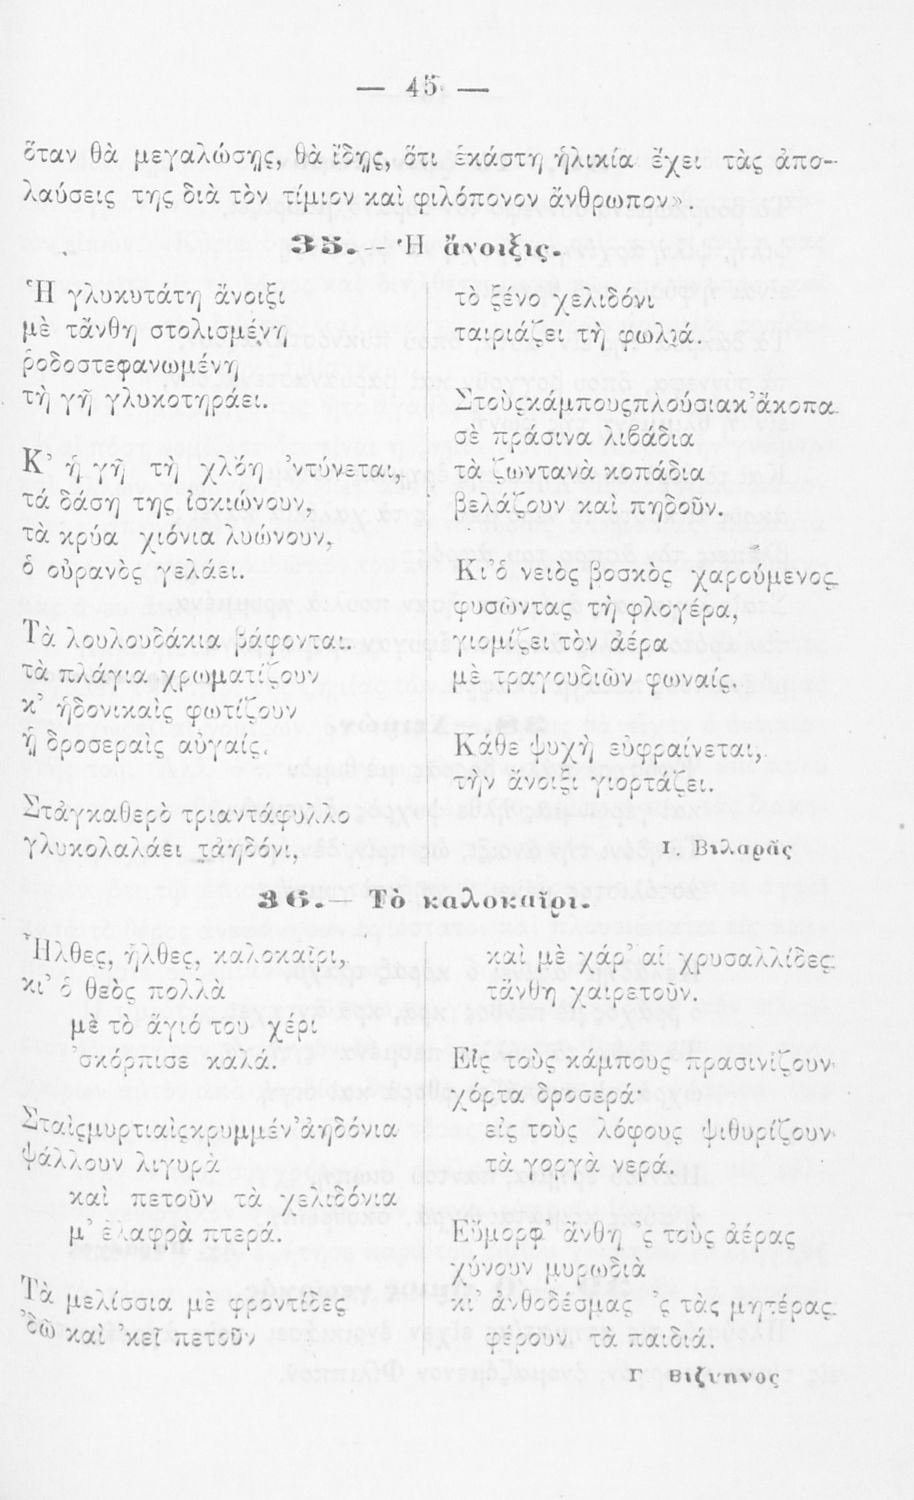 — 45 —
ὅταν θὰ μεγαλώσῃς, θὰ ἴδῃς, ὅτι ἑκάστη ἡλικία ἔχει τὰς ἀπο-
λαύσεις της διὰ τὸν τίμιον καὶ φιλόπονον ἄνθρωπον».
35.— Ἡ ἄνοιξις.
Ἡ γλυκυτάτη ἄνοιξι
μὲ τἄνθη στολισμένη
ῥοδοστεφανωμένη
τὴ γῆ γλυκοτηράει.
Κ' ἡ γῆ τὴ χλόη 'ντύνεται,
τὰ δάση της ἰσκιώνουν,
τὰ κρύα χιόνια λυώνουν,
ὁ οὐρανὸς γελάει.
Τὰ λουλουδάκια βάφονται.
τὰ πλάγια χρωματίζουν
κ' ἡδονικαὶς φωτίζουν
ᾑ δροσεραὶς αὐγαίς.
Στἀγκαθερὸ τριαντάφυλλο
γλυκολαλάει τἀηδόνι,
τὸ ξένο χελιδόνι
ταιριάζει τὴ φωλιά.
Στοὺςκάμπουςπλούσιακ'ἄκοπα
σὲ πράσινα λιβάδια
τὰ ζωντανὰ κοπάδια
βελάζουν καὶ πηδοῦν.
Κι'ὁ νειὸς βοσκὸς χαρούμενος
φυσῶντας τὴ φλογέρα,
γιομίζει τὸν ἀέρα
μὲ τραγουδιῶν φωναίς.
Κάθε ψυχὴ εὐφραίνεται,
τὴν ἄνοιξι γιορτάζει.
Ι. Βιλαρᾶς
36.— Τὸ καλοκαῖρι.
Ἦλθες, ἦλθες, καλοκαῖρι,
κι' ὁ θεὸς πολλὰ
μὲ τὸ ἅγιό του χέρι
'σκόρπισε καλά.
Σταὶςμυρτιαὶςκρυμμέν'ἀηδόνια
ψάλλουν λιγυρὰ
καὶ πετοῦν τὰ χελιδόνια
μ' ἐλαφρὰ πτερά.
Τὰ μελίσσια μὲ φροντίδες
'δῶ καὶ 'κεῖ πετοῦν
καὶ μὲ χάρ' αἱ χρυσαλλίδες
τἄνθη χαιρετοῦν.
Εἰς τοὺς κάμπους πρασινίζουν
χόρτα δροσερά·
εἰς τοὺς λόφους ψιθυρίζουν
τὰ γοργὰ νερά.
Εὔμορφ' ἄνθη 'ς τοὺς ἀέρας
χύνουν μυρωδιὰ
κι' ἀνθοδέσμας 'ς τὰς μητέρας
φέρουν τὰ παιδιά.
Γ Βιζυηνος